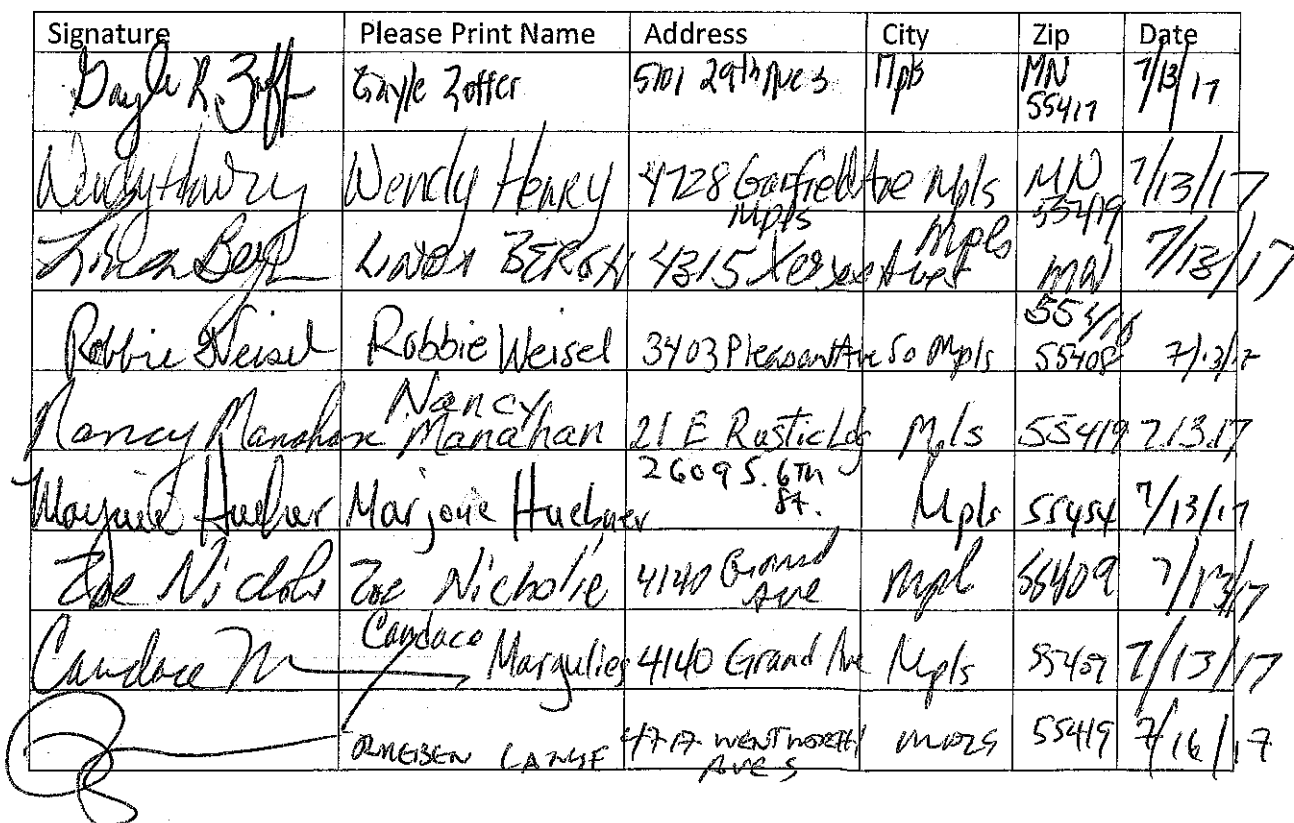 Signature Please Print Name Address City Zip Date
Gayle R. Zoff Gayle Zoffer 5101 29th Ave S Mpls MN 55417 7/13/17
Wendy Henry Wendy Henry 4728 Garfield Ave Mpls Mpls MN 55419 7/13/17
Linda Berg 4315 Xerxes Ave S Mpls MN 7/13/17
Robbie Weisel Robbie Weisel 3403 Pleasant Ave So Mpls 55408 7/13/17
Nancy Manahan Nancy Manahan 21 E Rustic Ldg Mpls 55419 7.13.17
Marjorie Huebner Marjorie Huebner 2609 S. 6th St. Mpls 55454 7/13/17
Zoe Nicholie 4140 Grand Ave Mpl 55409 7/13/17
Candace M Candace Margulies 4140 Grand Ave Mpls 55409 7/13/17
LANGE 4717 WENTWORTH AVE S MPLS 55419 7/16/17